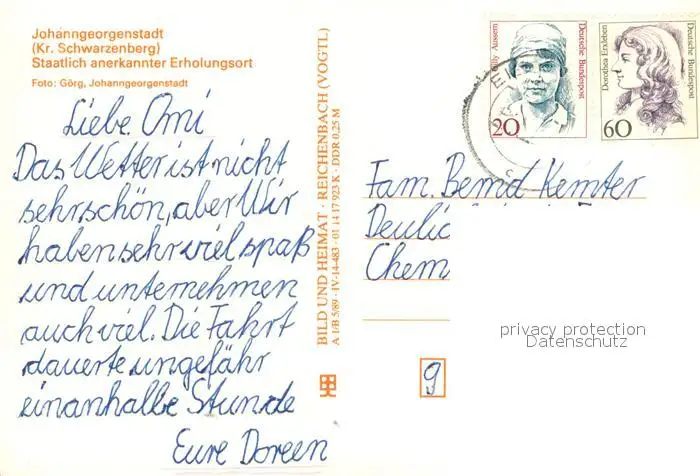 Johanngeorgenstadt
(Kr. Schwarzenberg)
Staatlich anerkannter Erholungsort
Foto: Görg, Johanngeorgenstadt
Liebe Omi
Das Wetter ist nicht
sehr schön, aber Wir
haben sehr viel spaß
und unternehmen
auch viel. Die Fahrt
dauerte ungefähr
einanhalbe Stunde
Eure Doreen
BILD UND HEIMAT · REICHENBACH (VOGTL)
A 1/B 5/89 · IV-14-483 · 01 14 17 923 K · DDR 0,25 M
Deutsche Bundespost
20
Dorothea Erxleben
Deutsche Bundespost
60
Fam. Bernd Kemter
Deulic
Chem
privacy protection
Datenschutz
9